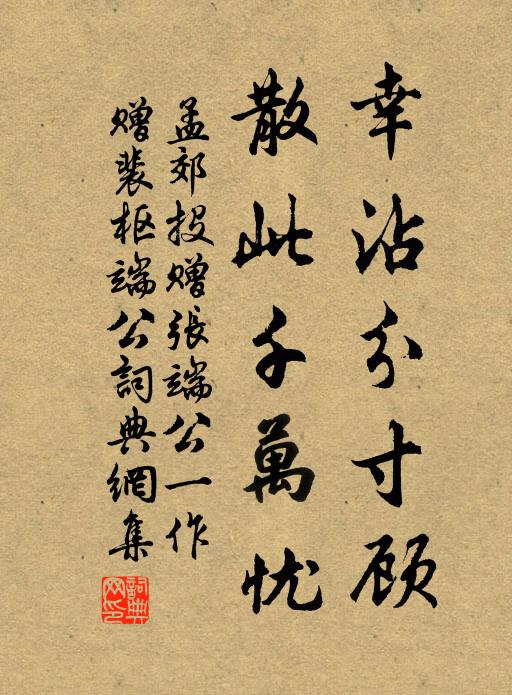 幸沾分寸顾
散此千萬忧
孟郊投赠張端公一作
赠裴枢端公詞典網集
詞典网印